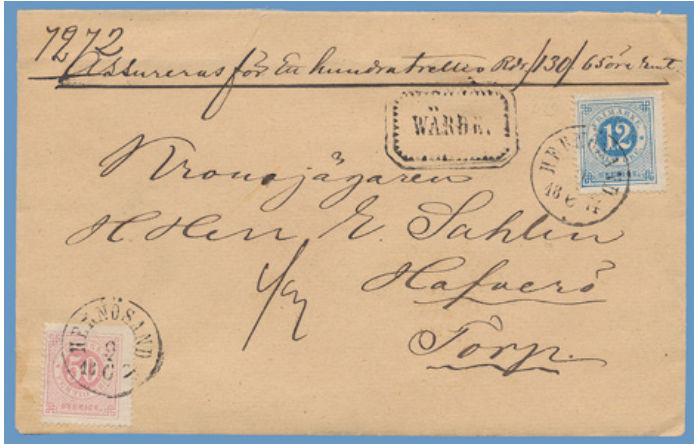 7972
Assureras för Ett hundratrettio Rdr /130/ 65 öre rmt.
WÄRDE.
FRIMÄRKE
12
HERNÖSAND
18 6 74
Kronojägaren
H. Herr E. Sahlin
Hafverö
Torp.
HERNÖSAND
2
18 6 7
50